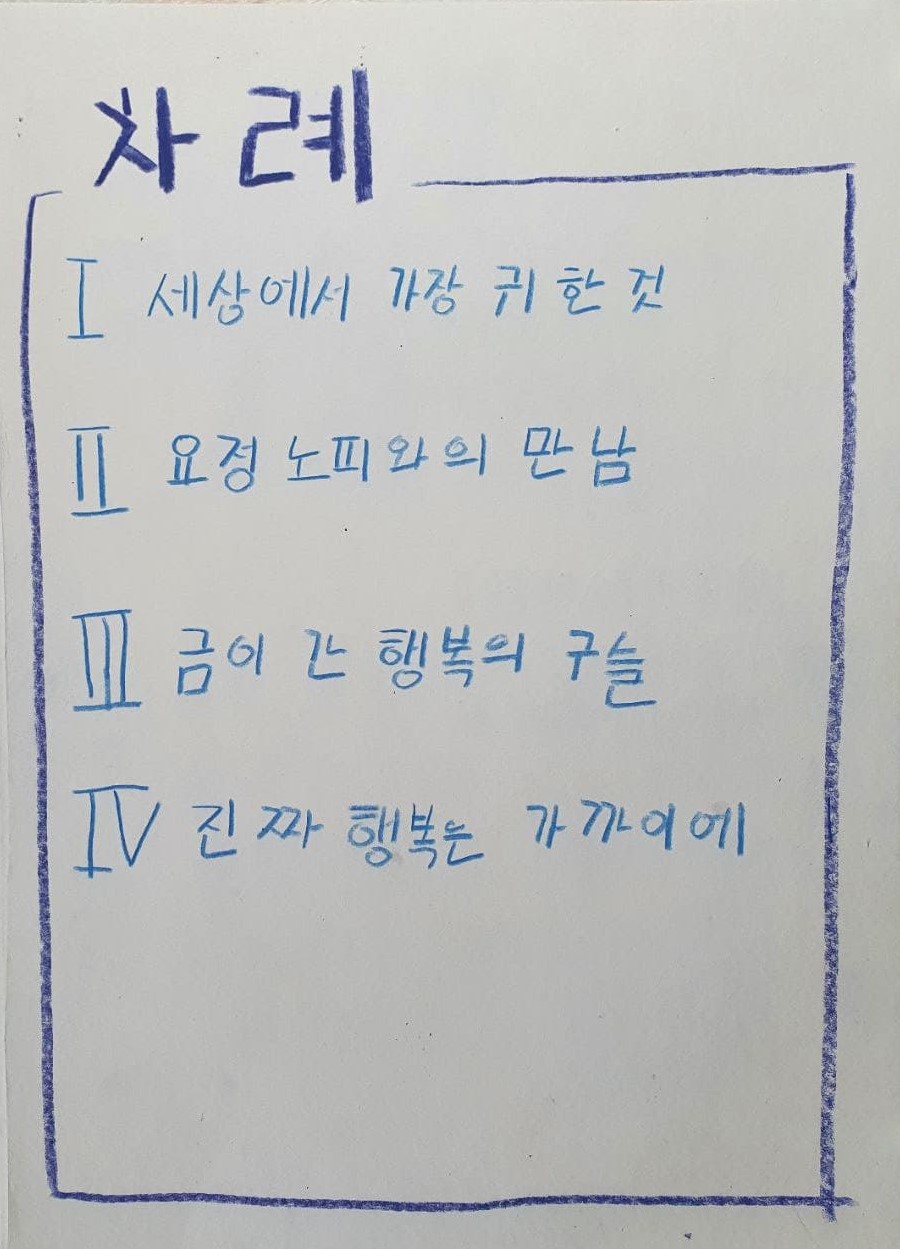 차례
I 세상에서 가장 귀한 것
II 요정 노피와의 만남
III 금이 간 행복의 구슬
IV 진짜 행복은 가까이에